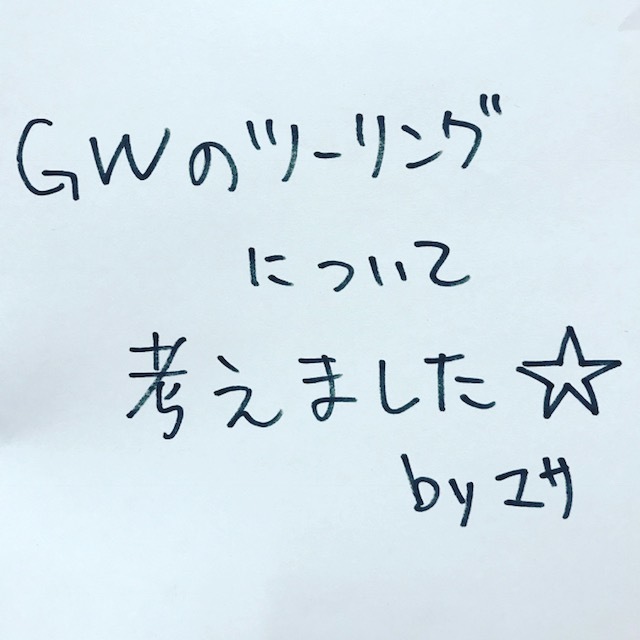 GWのツーリング
について
考えました☆
byユサ